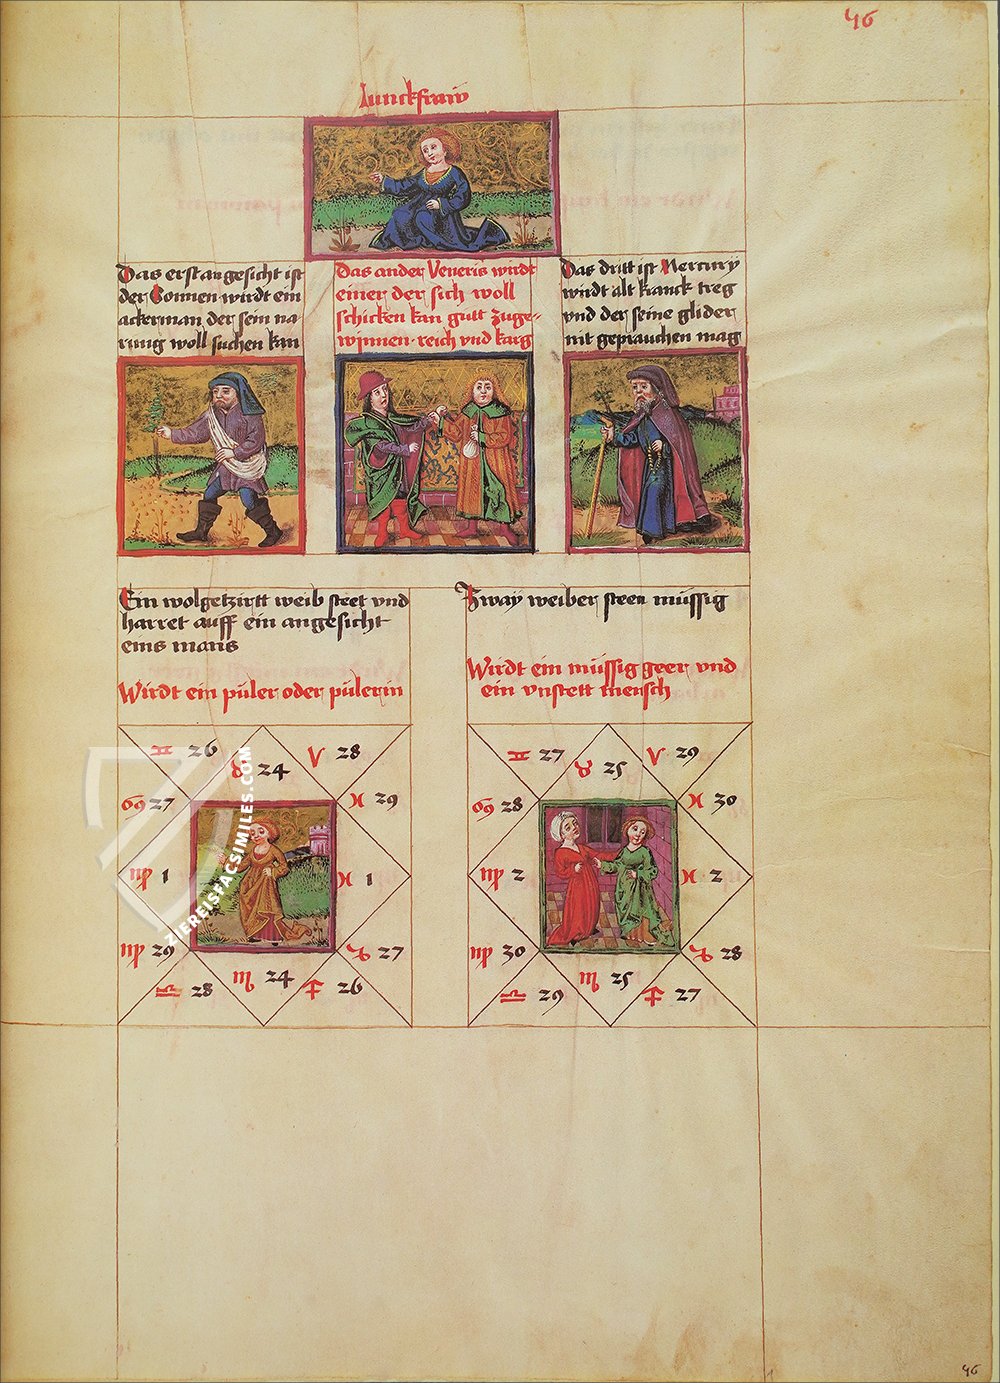 46
Junckfraw
Das erst angesicht ist
der Sonnen wirdt ein
ackerman der sein na
rung woll suchen kan
Das ander Veneris wirdt
einer der sich woll
schicken kan gutt zuge=
wynnen · reich vnd karg
Das dritt ist Mercury
wirdt alt kranck treg
vnd der seine glider
nit geprauchen mag
Ein wolgetzirtt weib steet vnd
harret auff ein angesicht
eins mans
Wirdt ein puler oder pulerin
Zway weiber steen müssig
Wirdt ein müssig geer vnd
ein vnstett mensch
♊ 26
♉ 24
♈ 28
♋ 27
♓ 29
♍ 1
♓ 1
♍ 29
♑ 27
♎ 28
♏ 24
♐ 26
♊ 27
♉ 25
♈ 29
♋ 28
♓ 30
♍ 2
♓ 2
♍ 30
♑ 28
♎ 29
♏ 25
♐ 27
ZIEREISFACSIMILES.COM
46